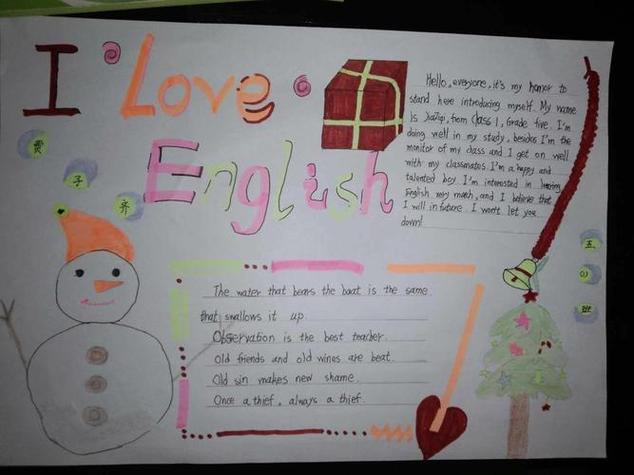 I Love
English
费
子
齐
Hello, everyone, it's my honor to
stand here introducing myself. My name
is Ziqi, from Class 1, Grade five. I'm
doing well in my study, besides I'm the
monitor of my class and I get on well
with my classmates. I'm a happy and
talented boy. I'm interested in
English very much, and I believe that
I will in future. I won't let you
down!
五
班
The water that bears the boat is the same
that swallows it up
Observation is the best teacher.
Old friends and old wines are beat.
Old sin makes new shame.
Once a thief, always a thief.